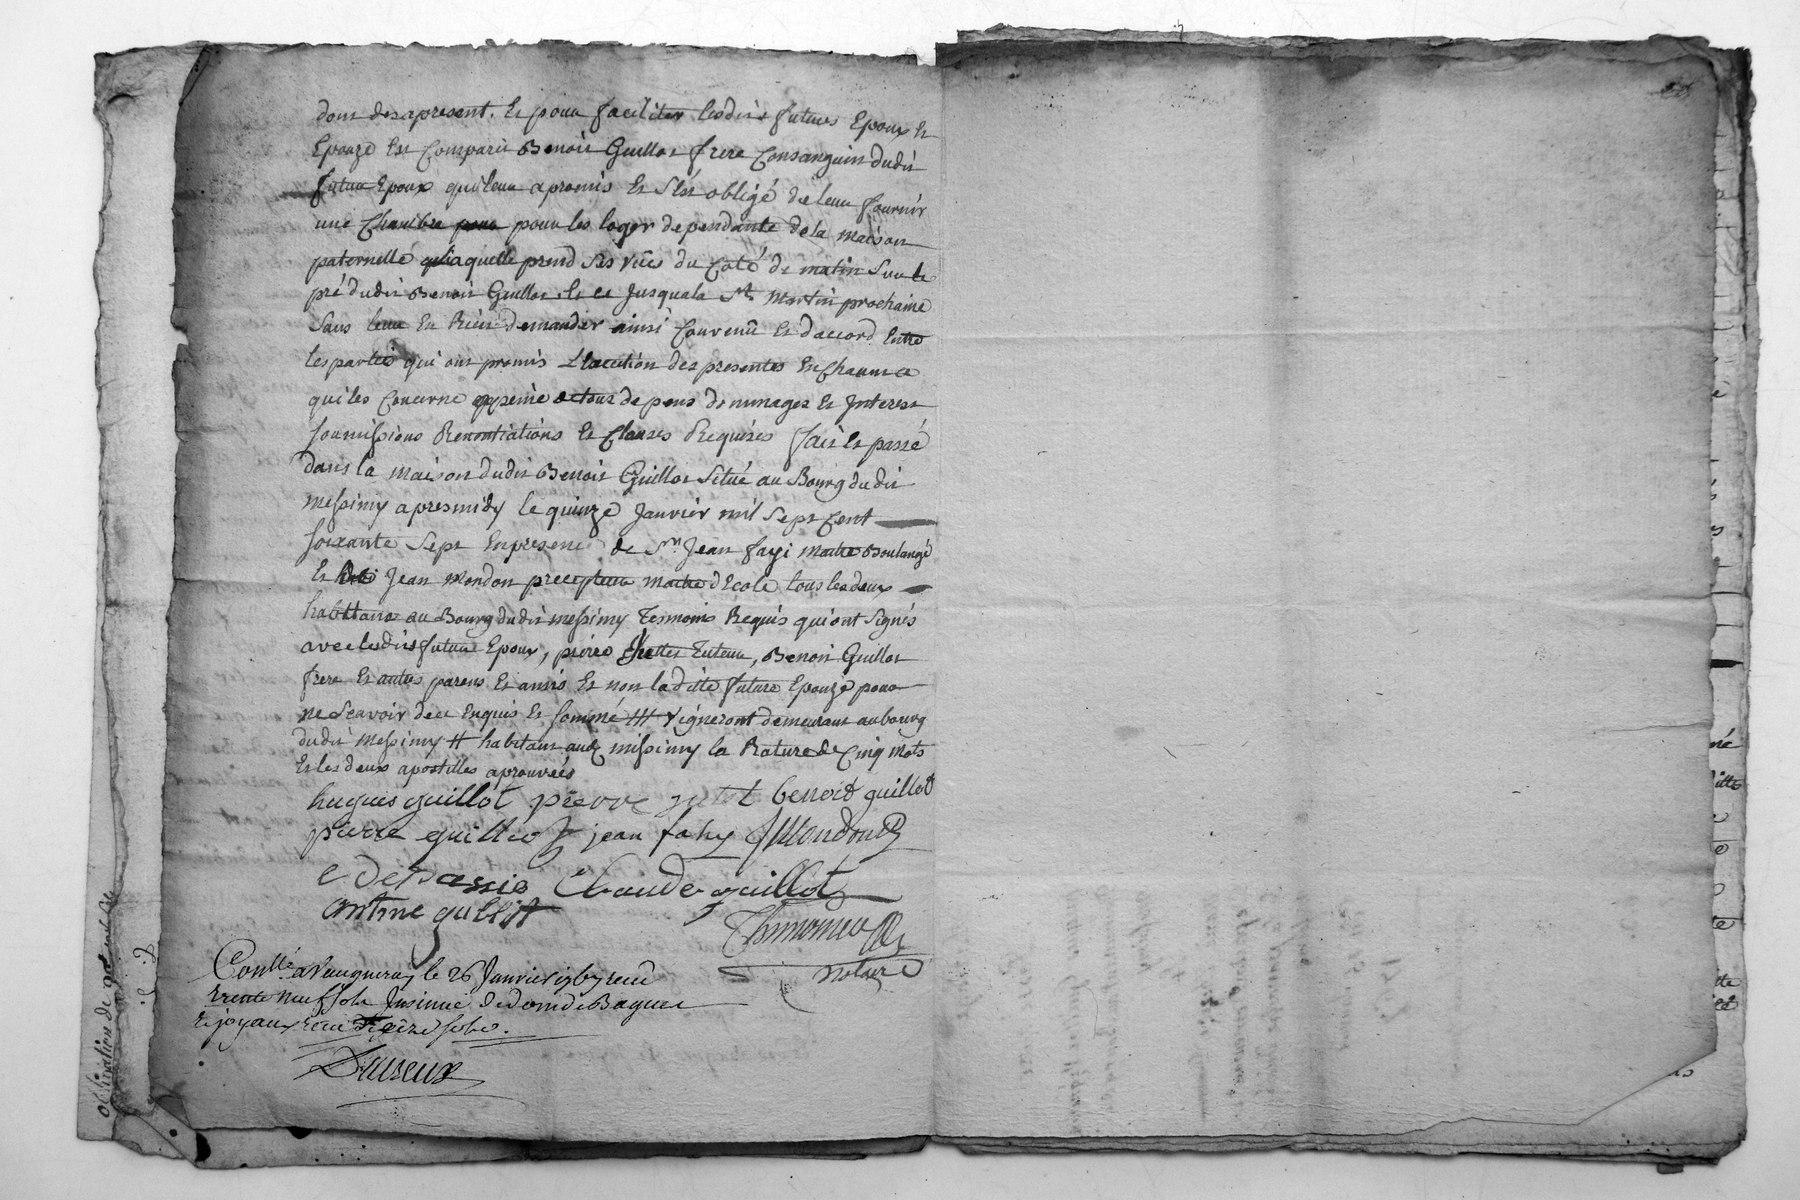 dont des apresent. Et pour faciliter lesdits futurs Epoux et
Epouze Est Comparû Benoit Guillot frere Consanguin dudit
futur Epoux qui leur a promis Et s'est obligé de leur fournir
une Chambre pour les loger dependante de la maison
paternelle laquelle prend ses vûes du Coté de matin sur le
pré dudit Benoit Guillot Et ce Jusquala St Martin prochaine
sans leur En Rien demander ainsi Convenû Et daccord Entre
les parties qui ont promis des presentes En Chacun ce
qui les Concerne a peine de tous depens dommages Et Interest
soumissions Renontiations Et Clauses Requises fait Et passé
dans la maison dudit Benoit Guillot Situé au Bourg dudit
messimy apresmidy le quinze Janvier mil Sept Cent
soixante Sept En presence de Sr Jean fayi maitre Boulangé
Et Jean mondon precepteur maitre d'Ecole tous les deux
habittans au Bourg dudit messimy Tesmoins Requis qui ont Signés
avec lesdits futurs Epoux, pierre Tuteur, Benoit Guillot
frere Et autres parens Et amis Et non laditte future Epouze pour
ne Scavoir de ce Enquis Et sommé ### vigneront demeurant au bourg
dudit messimy ## habitant audt missimy la Rature de Cinq mots
Et les deux apostilles aprouvées
hugues guillot pierre benoit guillot
pierre guilliot jean fahy JMondon
Claude guillot
antine guillot
notaire
Conllé a Vaugneray le 26 Janvier 1767 recu
trente neuf sols Insinué le don de Bagues
et joyaux recu sols.
obligation de